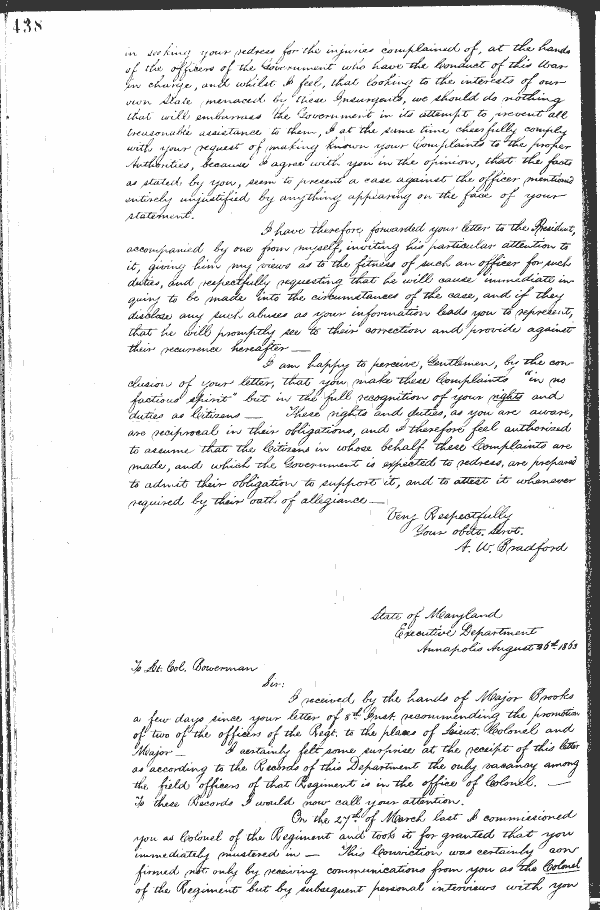 438
in seeking your redress for the injuries complained of, at the hands
of the officers of the Government who have the Conduct of this War
in charge, and whilst I feel, that looking to the interests of our
own State menaced by these Insurgents, we should do nothing
that will embarrass the Government in its attempt to prevent all
treasonable assistance to them, I at the same time cheerfully comply
with your request of making known your Complaints to the proper
Authorities, because I agree with you in the opinion, that the facts
as stated by you, seem to present a case against the officer mentioned
entirely unjustified by anything appearing on the face of your
statement.
I have therefore forwarded your letter to the President,
accompanied by one from myself, inviting his particular attention to
it, giving him my views as to the fitness of such an officer for such
duties, and respectfully requesting that he will cause immediate in-
quiry to be made into the circumstances of the case, and if they
disclose any such abuses as your information leads you to represent,
that he will promptly see to their correction and provide against
their recurrence hereafter —
I am happy to perceive, Gentlemen, by the con-
clusion of your letter, that you make these Complaints "in no
factious spirit" but in the full recognition of your rights and
duties as Citizens — These rights and duties, as you are aware,
are reciprocal in their obligations, and I therefore feel authorized
to assume that the Citizens in whose behalf these Complaints are
made, and which the Government is expected to redress, are prepared
to admit their obligation to support it, and to attest it whenever
required by their oath of allegiance —
Very Respectfully
Your obdt. Servt.
A. W. Bradford
State of Maryland
Executive Department
Annapolis August 26th 1863
To Lt. Col. Bowerman
Sir:
I received by the hands of Major Brooks
a few days since your letter of 8th Inst. recommending the promotion
of two of the officers of the Regt. to the places of Lieut. Colonel and
Major — I certainly felt some surprise at the receipt of this letter
as according to the Records of this Department the only vacancy among
the field officers of that Regiment is in the office of Colonel. —
To these Records I would now call your attention.
On the 27th of March last I commissioned
you as Colonel of the Regiment and took it for granted that you
immediately mustered in — This Conviction was certainly con
firmed not only by receiving communications from you as the Colonel
of the Regiment but by subsequent personal interviews with you